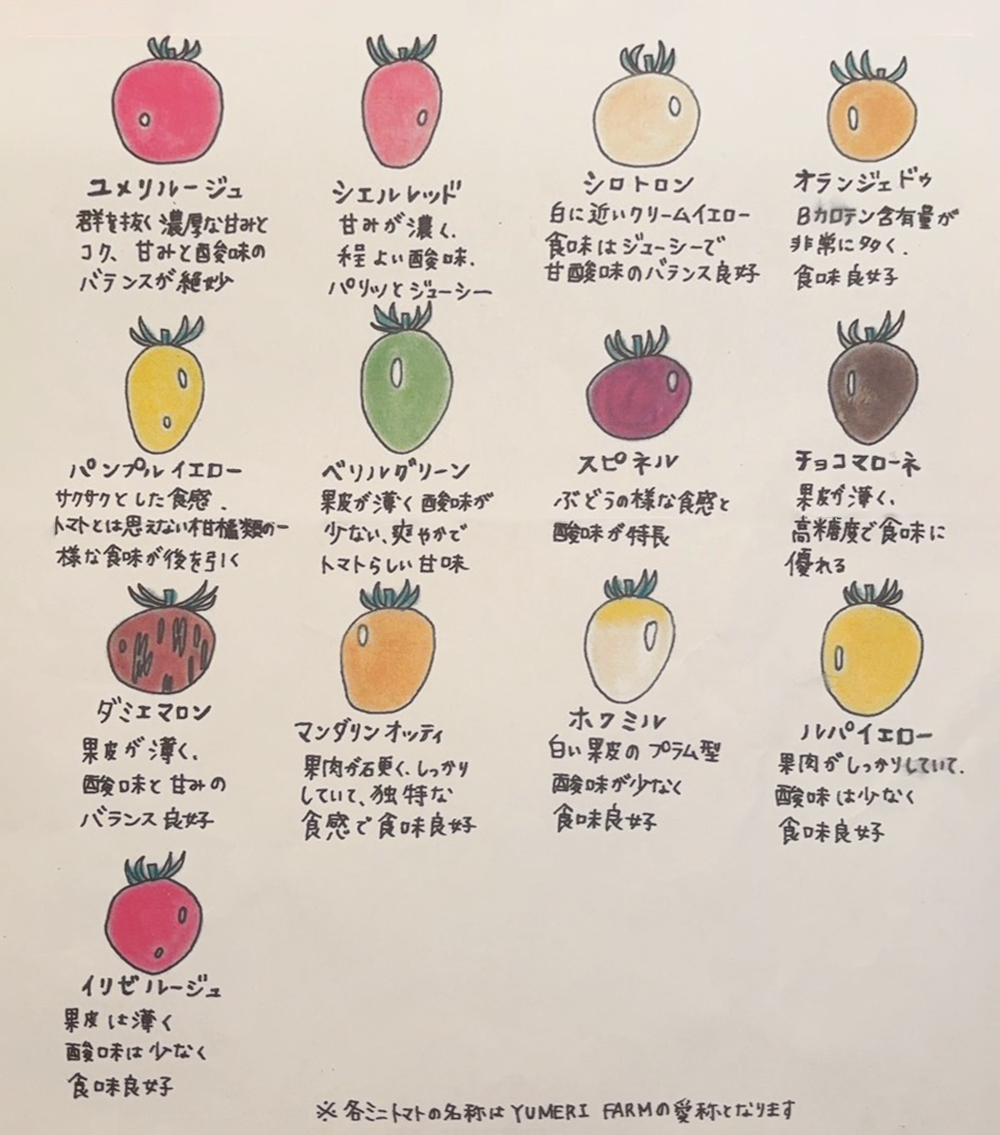 ユメリルージュ
群を抜く濃厚な甘みと
コク、甘みと酸味の
バランスが絶妙
シエルレッド
甘みが濃く、
程よい酸味、
パリッとジューシー
シロトロン
白に近いクリームイエロー
食味はジューシーで
甘酸味のバランス良好
オランジェドゥ
Bカロテン含有量が
非常に多く、
食味良好
パンプルイエロー
サクサクとした食感、
トマトとは思えない柑橘類の
様な食味が後を引く
ベリルグリーン
果皮が薄く酸味が
少ない、爽やかで
トマトらしい甘味
スピネル
ぶどうの様な食感と
酸味が特長
チョコマローネ
果皮が薄く、
高糖度で食味に
優れる
ダミエマロン
果皮が薄く、
酸味と甘みの
バランス良好
マンダリンオッティ
果肉が硬く、しっかり
していて、独特な
食感で食味良好
ホワミル
白い果皮のプラム型
酸味が少なく
食味良好
ルパイエロー
果肉がしっかりしていて、
酸味は少なく
食味良好
イリゼルージュ
果皮は薄く
酸味は少なく
食味良好
※各ミニトマトの名称はYUMERI FARMの愛称となります